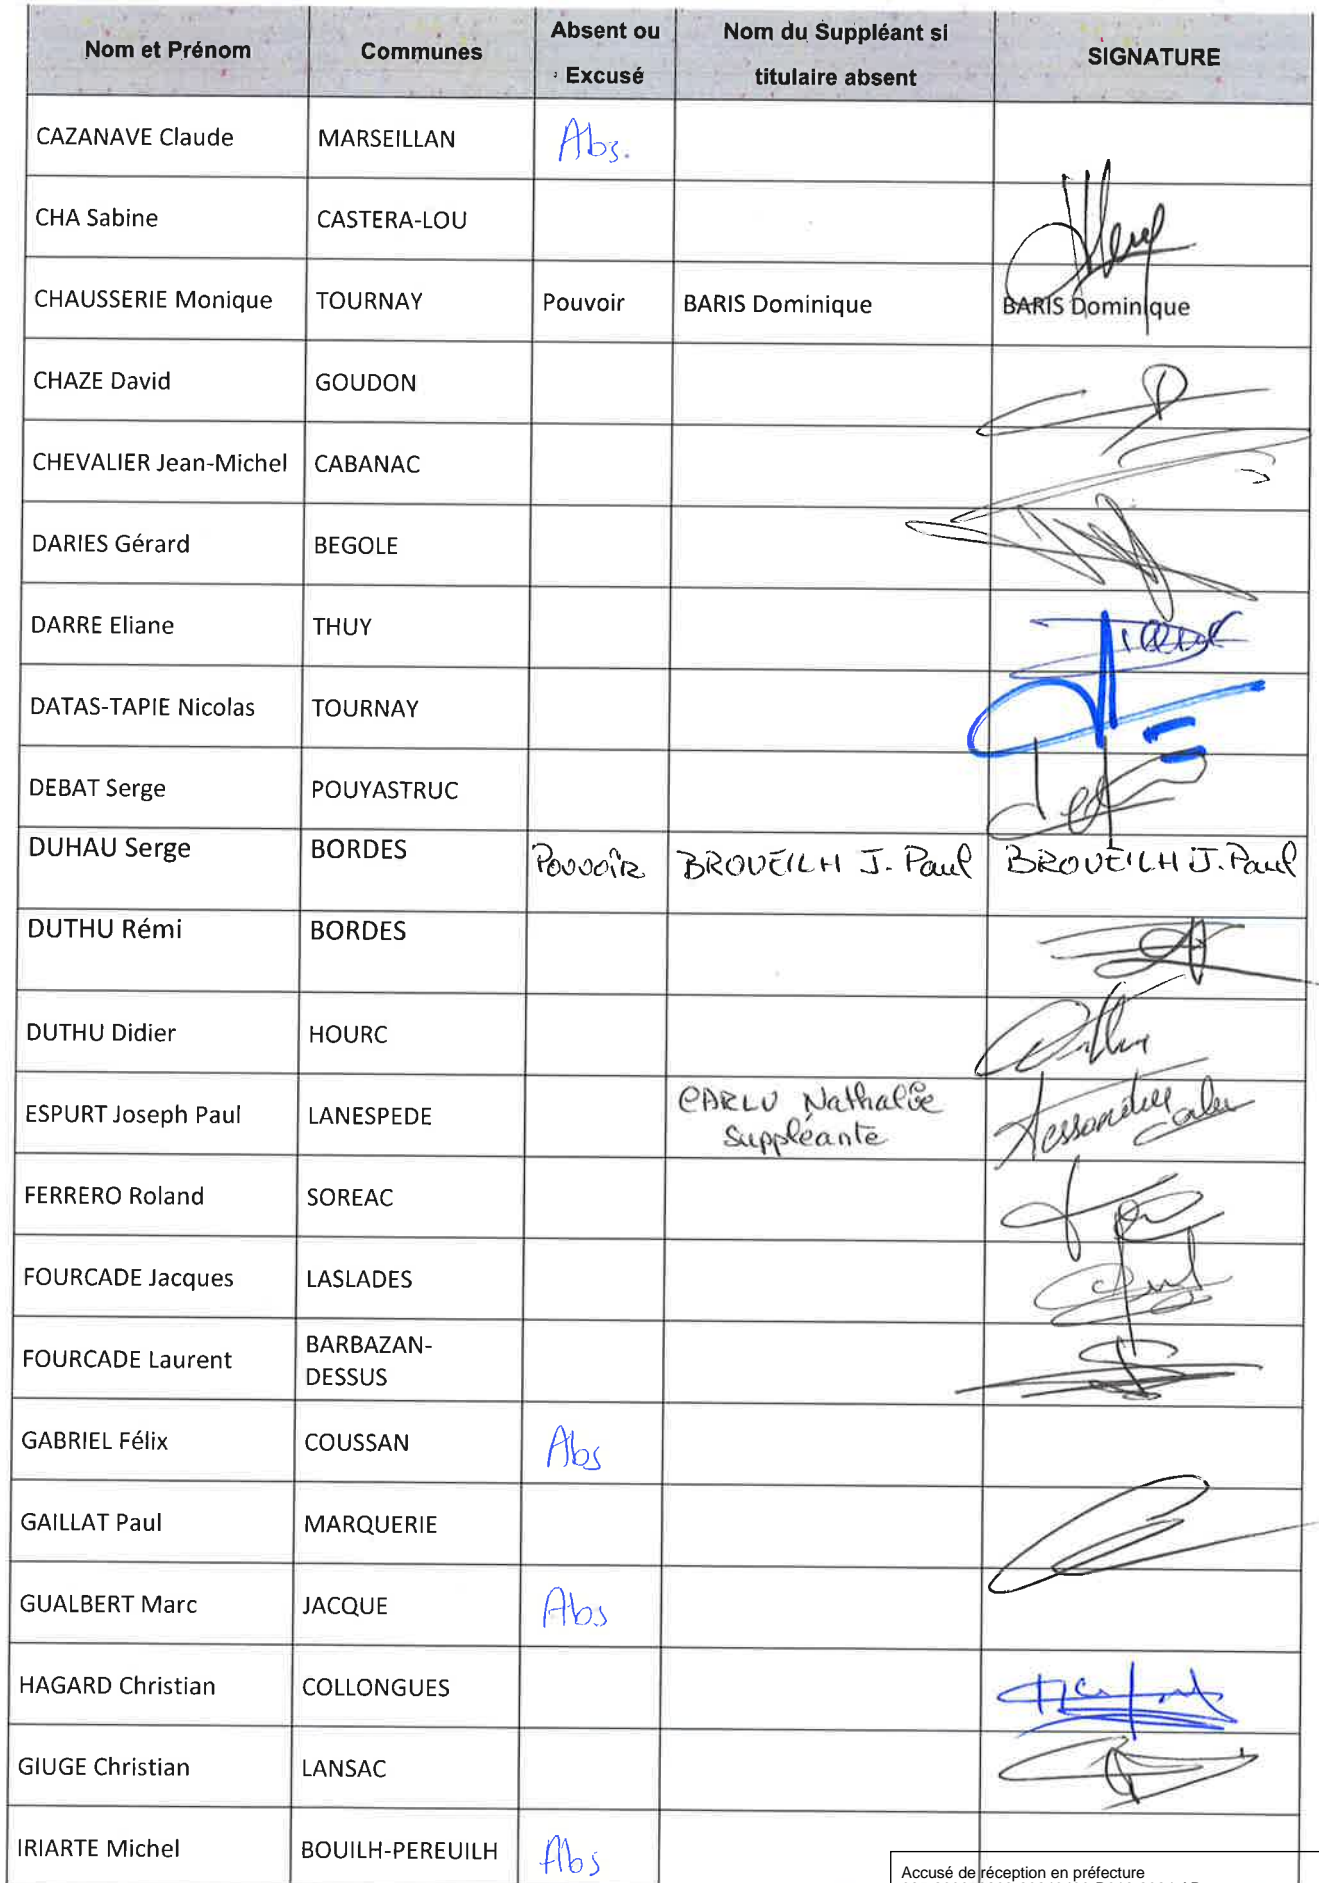 Nom et Prénom Communes Absent ou Excusé Nom du Suppléant si titulaire absent SIGNATURE
CAZANAVE Claude MARSEILLAN Abs.
CHA Sabine CASTERA-LOU
CHAUSSERIE Monique TOURNAY Pouvoir BARIS Dominique BARIS Dominique
CHAZE David GOUDON
CHEVALIER Jean-Michel CABANAC
DARIES Gérard BEGOLE
DARRE Eliane THUY
DATAS-TAPIE Nicolas TOURNAY
DEBAT Serge POUYASTRUC
DUHAU Serge BORDES Pouvoir BROUEILH J. Paul BROUEILH J. Paul
DUTHU Rémi BORDES
DUTHU Didier HOURC
ESPURT Joseph Paul LANESPEDE CARLU Nathalie Suppléante
FERRERO Roland SOREAC
FOURCADE Jacques LASLADES
FOURCADE Laurent BARBAZAN-DESSUS
GABRIEL Félix COUSSAN Abs
GAILLAT Paul MARQUERIE
GUALBERT Marc JACQUE Abs
HAGARD Christian COLLONGUES
GIUGE Christian LANSAC
IRIARTE Michel BOUILH-PEREUILH Abs
Accusé de réception en préfecture